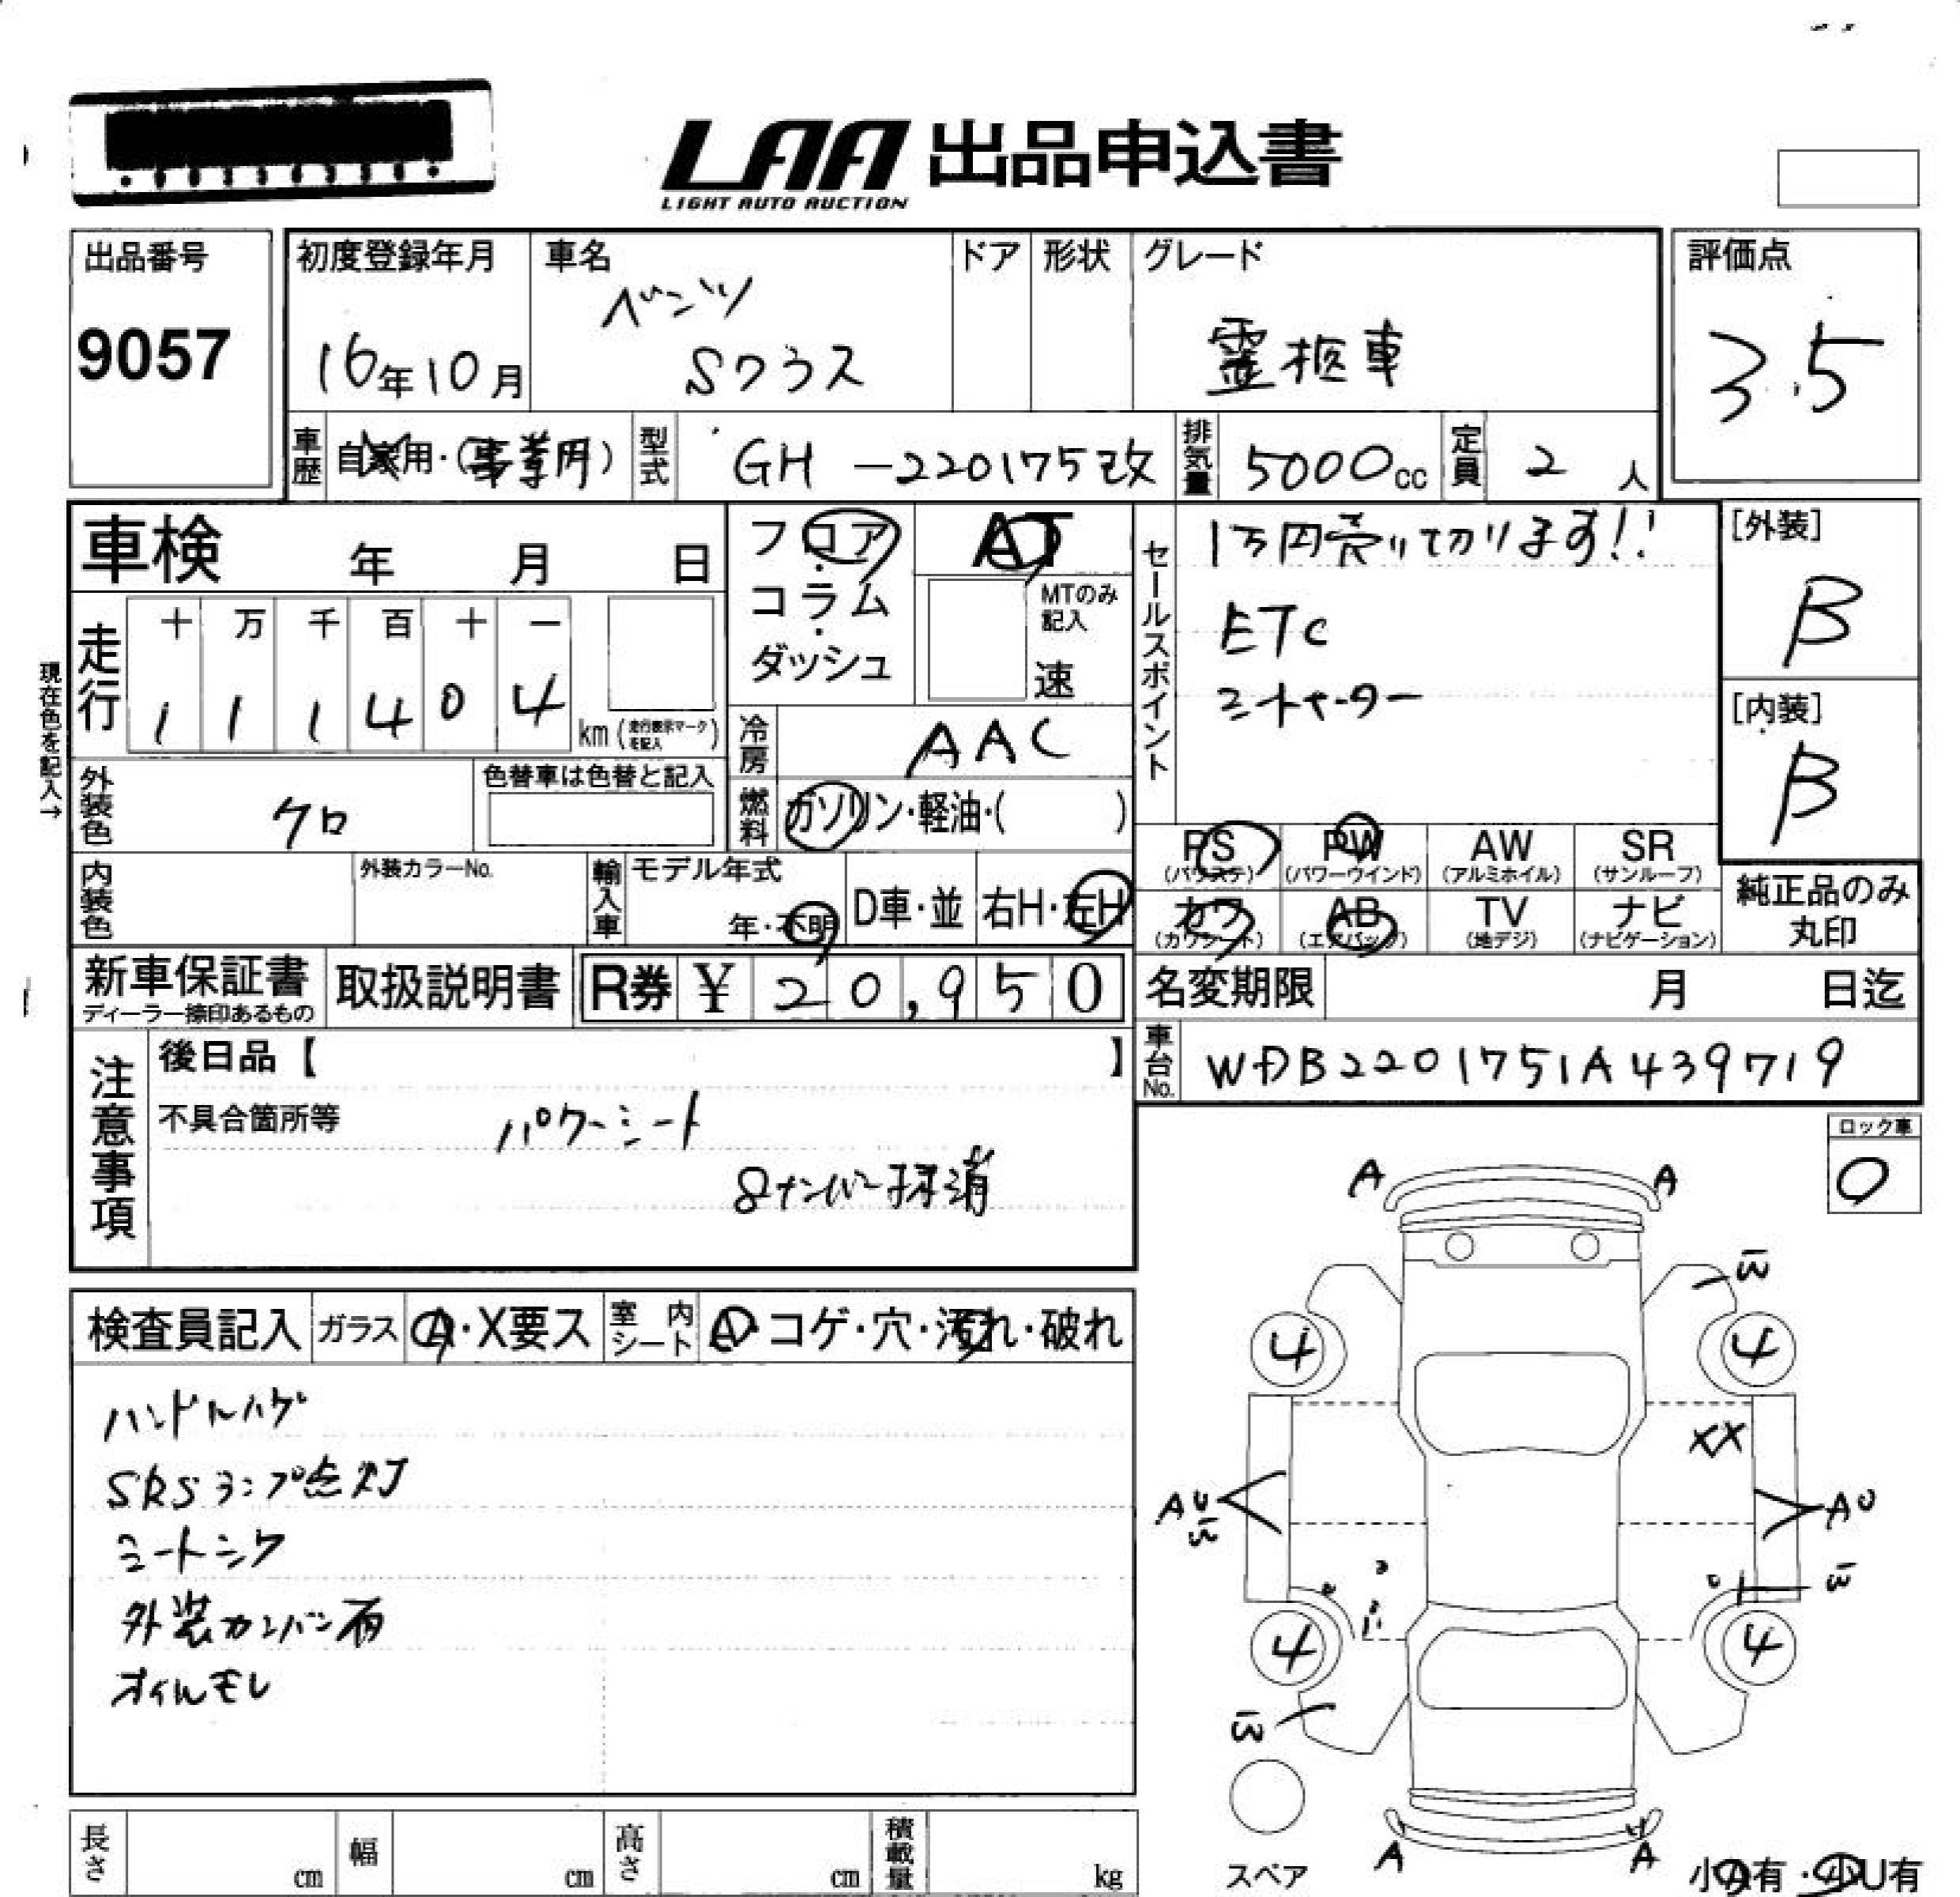 LAA 出品申込書
LIGHT AUTO AUCTION
出品番号
9057
初度登録年月
16年10月
車名
ベンツ
Sクラス
ドア
形状
グレード
霊柩車
評価点
3.5
車歴
自家用・(事業用)
型式
GH-220175改
排気量
5000cc
定員
2人
車検 年 月 日
フロア・
コラム・
ダッシュ
AT
MTのみ
記入
速
セールスポイント
1万円売り切ります!!
ETC
[外装]
B
[内装]
B
現在色を記入→
走行
十 万 千 百 十 一
1 1 1 4 0 4
km(走行表示マークを記入)
冷房
AAC
外装色
クロ
色替車は色替と記入
燃料
ガソリン・軽油・( )
PS
(パワステ)
PW
(パワーウインド)
AW
(アルミホイル)
SR
(サンルーフ)
カワ
(カワシート)
AB
(エアバッグ)
TV
(地デジ)
ナビ
(ナビゲーション)
純正品のみ
丸印
内装色
外装カラーNo.
輸入車
モデル年式
年・不明
D車・並
右H・左H
新車保証書
ディーラー捺印あるもの
取扱説明書
R券 ¥ 20,950
名変期限 月 日迄
車台No.
WDB2201751A439719
注意事項
後日品【 】
不具合箇所等
パワーシート
8ナンバー抹消
ロック車
0
検査員記入
ガラス
A・X要ス
室内シート
A・コゲ・穴・汚れ・破れ
ハンドルハゲ
SRSランプ点灯
外装カンバン
オイルモレ
A A
4 4
XX
AU
AU
4 4
A A
スペア
小A有・小U有
長さ cm
幅 cm
高さ cm
積載量 kg